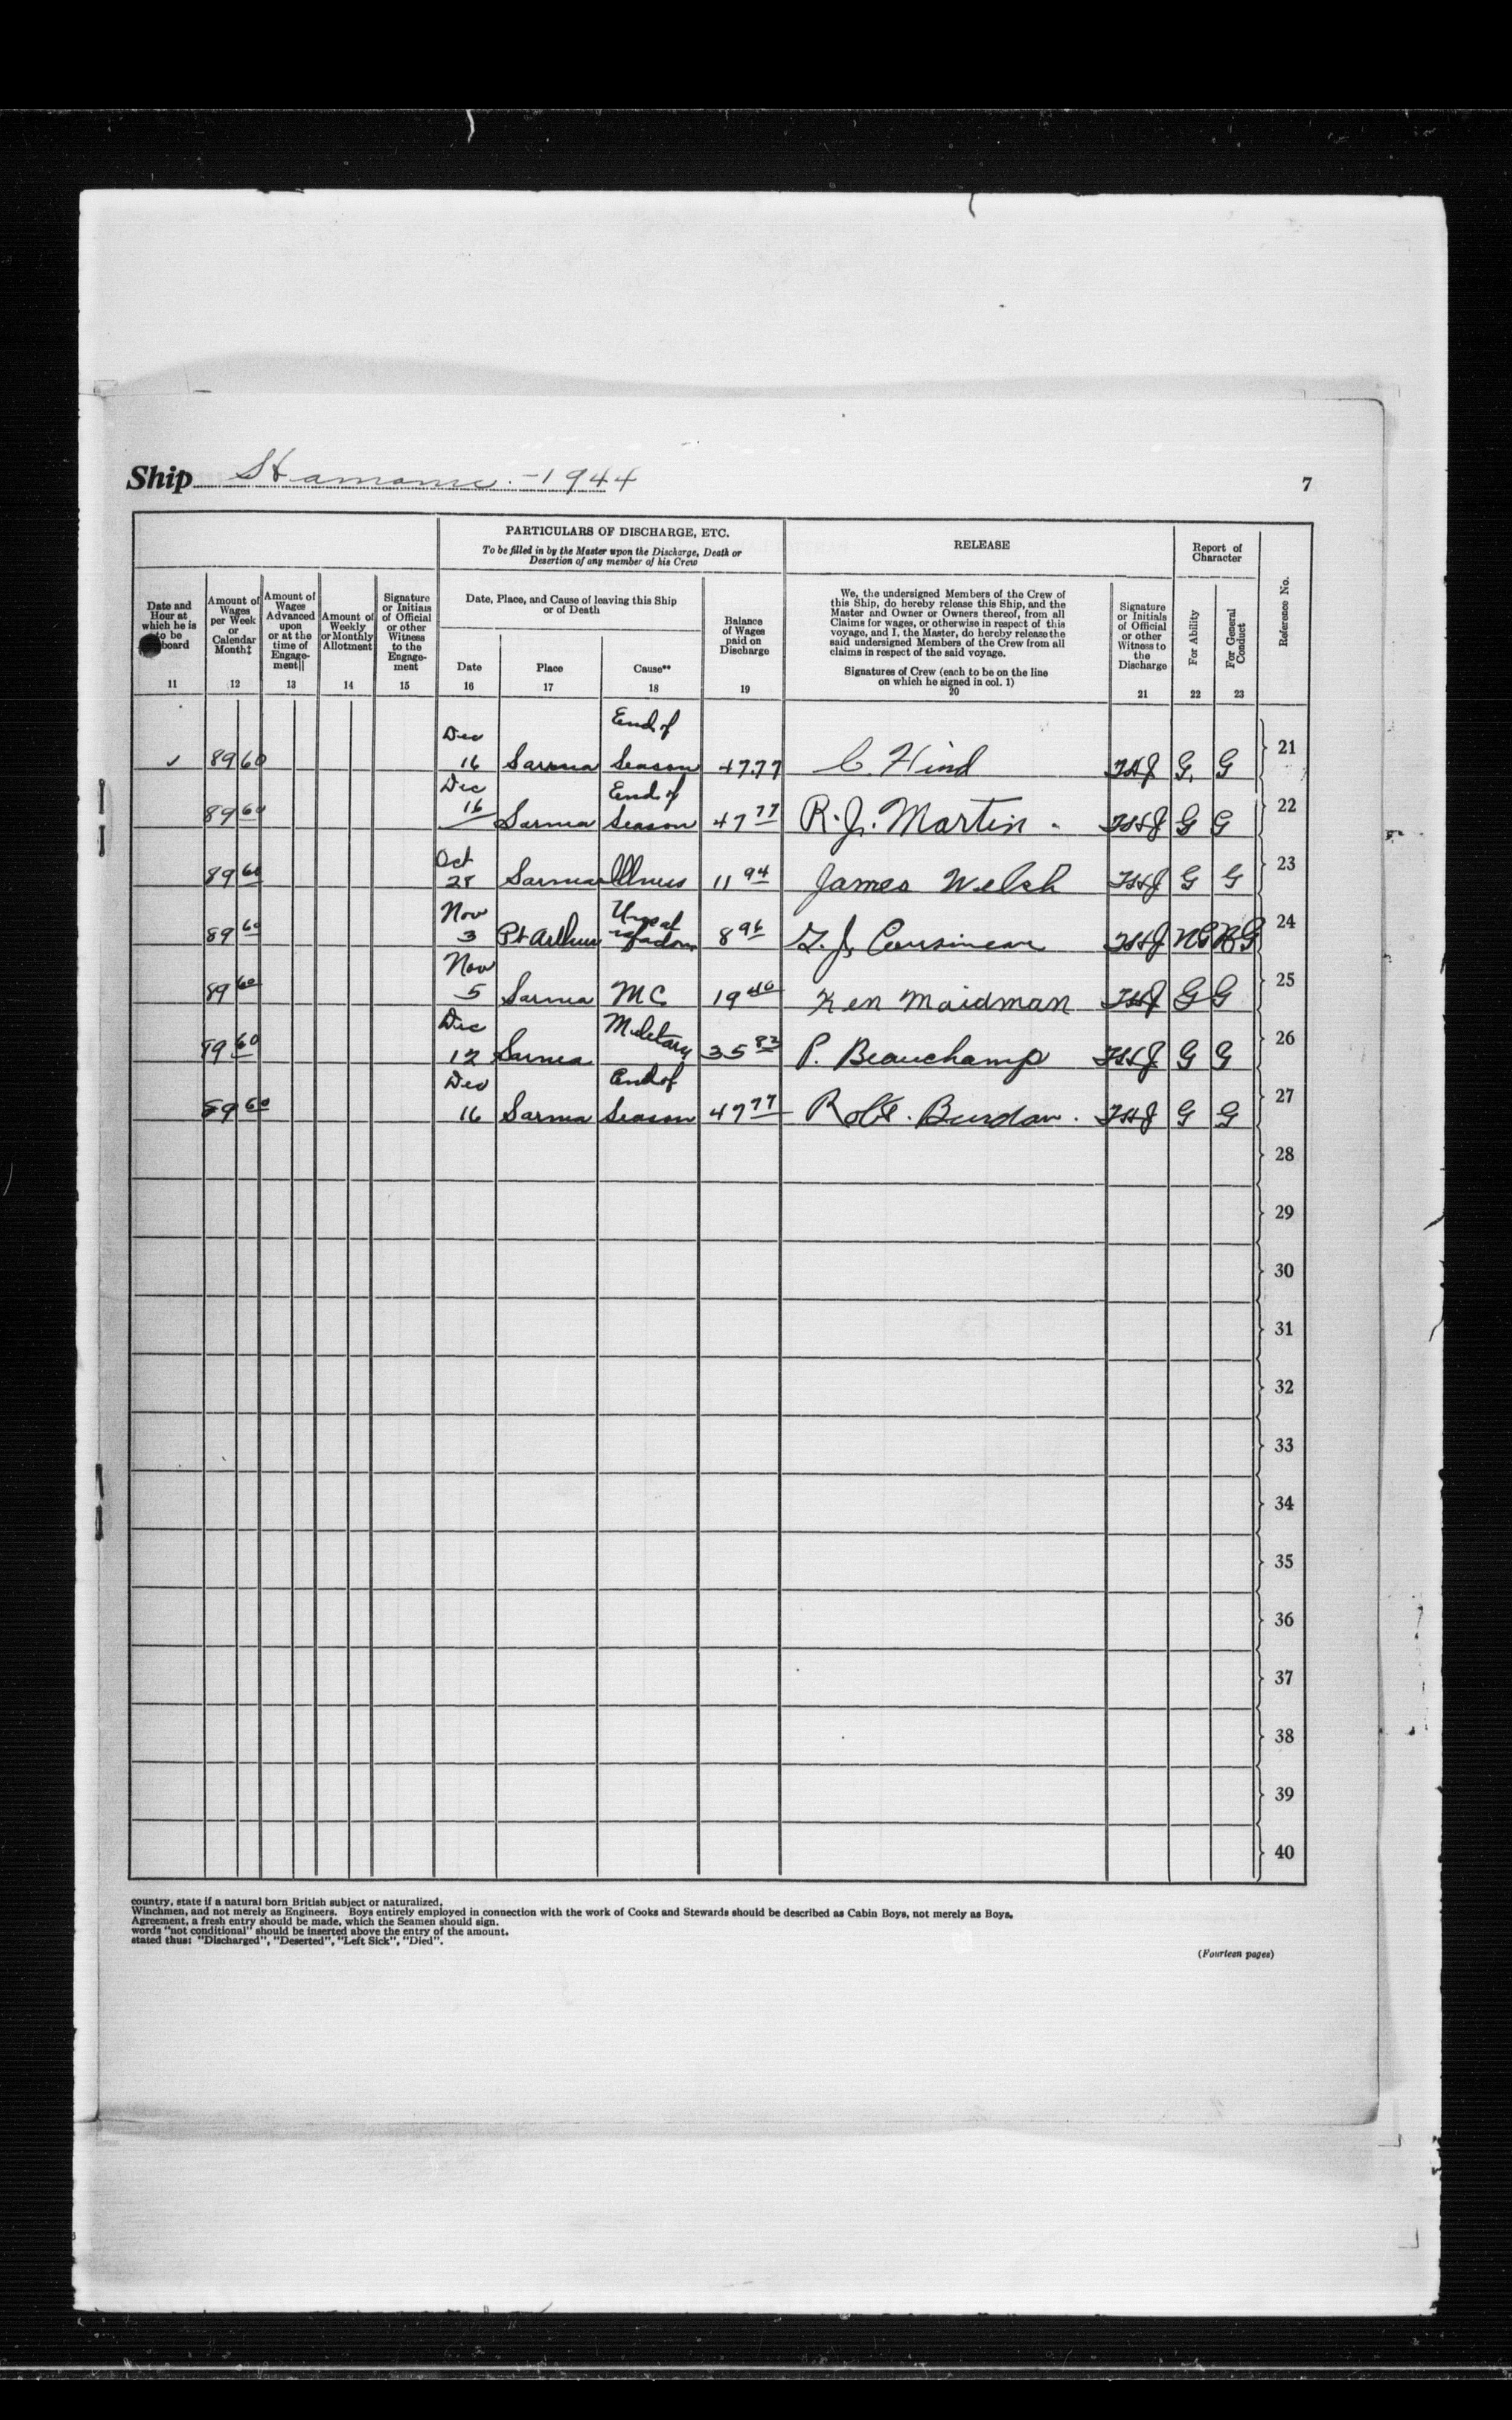 Ship Hamonic. - 1944
7
PARTICULARS OF DISCHARGE, ETC.
To be filled in by the Master upon the Discharge, Death or
Desertion of any member of his Crew
RELEASE
Report of
Character
Reference No.
Date and
Hour at
which he is
to be
board
11
Amount of
Wages
per Week
or
Calendar
Month‡
12
Amount of
Wages
Advanced
upon
or at the
time of
Engage-
ment||
13
Amount of
Weekly
or Monthly
Allotment
14
Signature
or Initials
of Official
or other
Witness
to the
Engage-
ment
15
Date, Place, and Cause of leaving this Ship
or of Death
Date
16
Place
17
Cause**
18
Balance
of Wages
paid on
Discharge
19
We, the undersigned Members of the Crew of
this Ship, do hereby release this Ship, and the
Master and Owner or Owners thereof, from all
Claims for wages, or otherwise in respect of this
voyage, and I, the Master, do hereby release the
said undersigned Members of the Crew from all
claims in respect of the said voyage.
Signatures of Crew (each to be on the line
on which he signed in col. 1)
20
Signature
or Initials
of Official
or other
Witness to
the
Discharge
21
For Ability
22
For General
Conduct
23
✓ 89 60 Dec 16 Sarnia End of Season 47.77 C Hind G. G 21
89 60 Dec 16 Sarnia End of Season 47 77 R. J. Martin G G 22
89 60 Oct 28 Sarnia Illness 11 94 James Welsh G G 23
89 60 Nov 3 Pt Arthur 8 96 J. Cousineau NG NG 24
89 60 Nov 5 Sarnia MC 19 40 Ken Maidman G G 25
89 60 Dec 12 Sarnia Military 35 82 P. Beauchamp G G 26
89 60 Dec 16 Sarnia End of Season 47 77 Robt. Burdan. G G 27
28
29
30
31
32
33
34
35
36
37
38
39
40
country, state if a natural born British subject or naturalized.
Winchmen, and not merely as Engineers. Boys entirely employed in connection with the work of Cooks and Stewards should be described as Cabin Boys, not merely as Boys.
Agreement, a fresh entry should be made, which the Seamen should sign.
words "not conditional" should be inserted above the entry of the amount.
stated thus: "Discharged", "Deserted", "Left Sick", "Died".
(Fourteen pages)